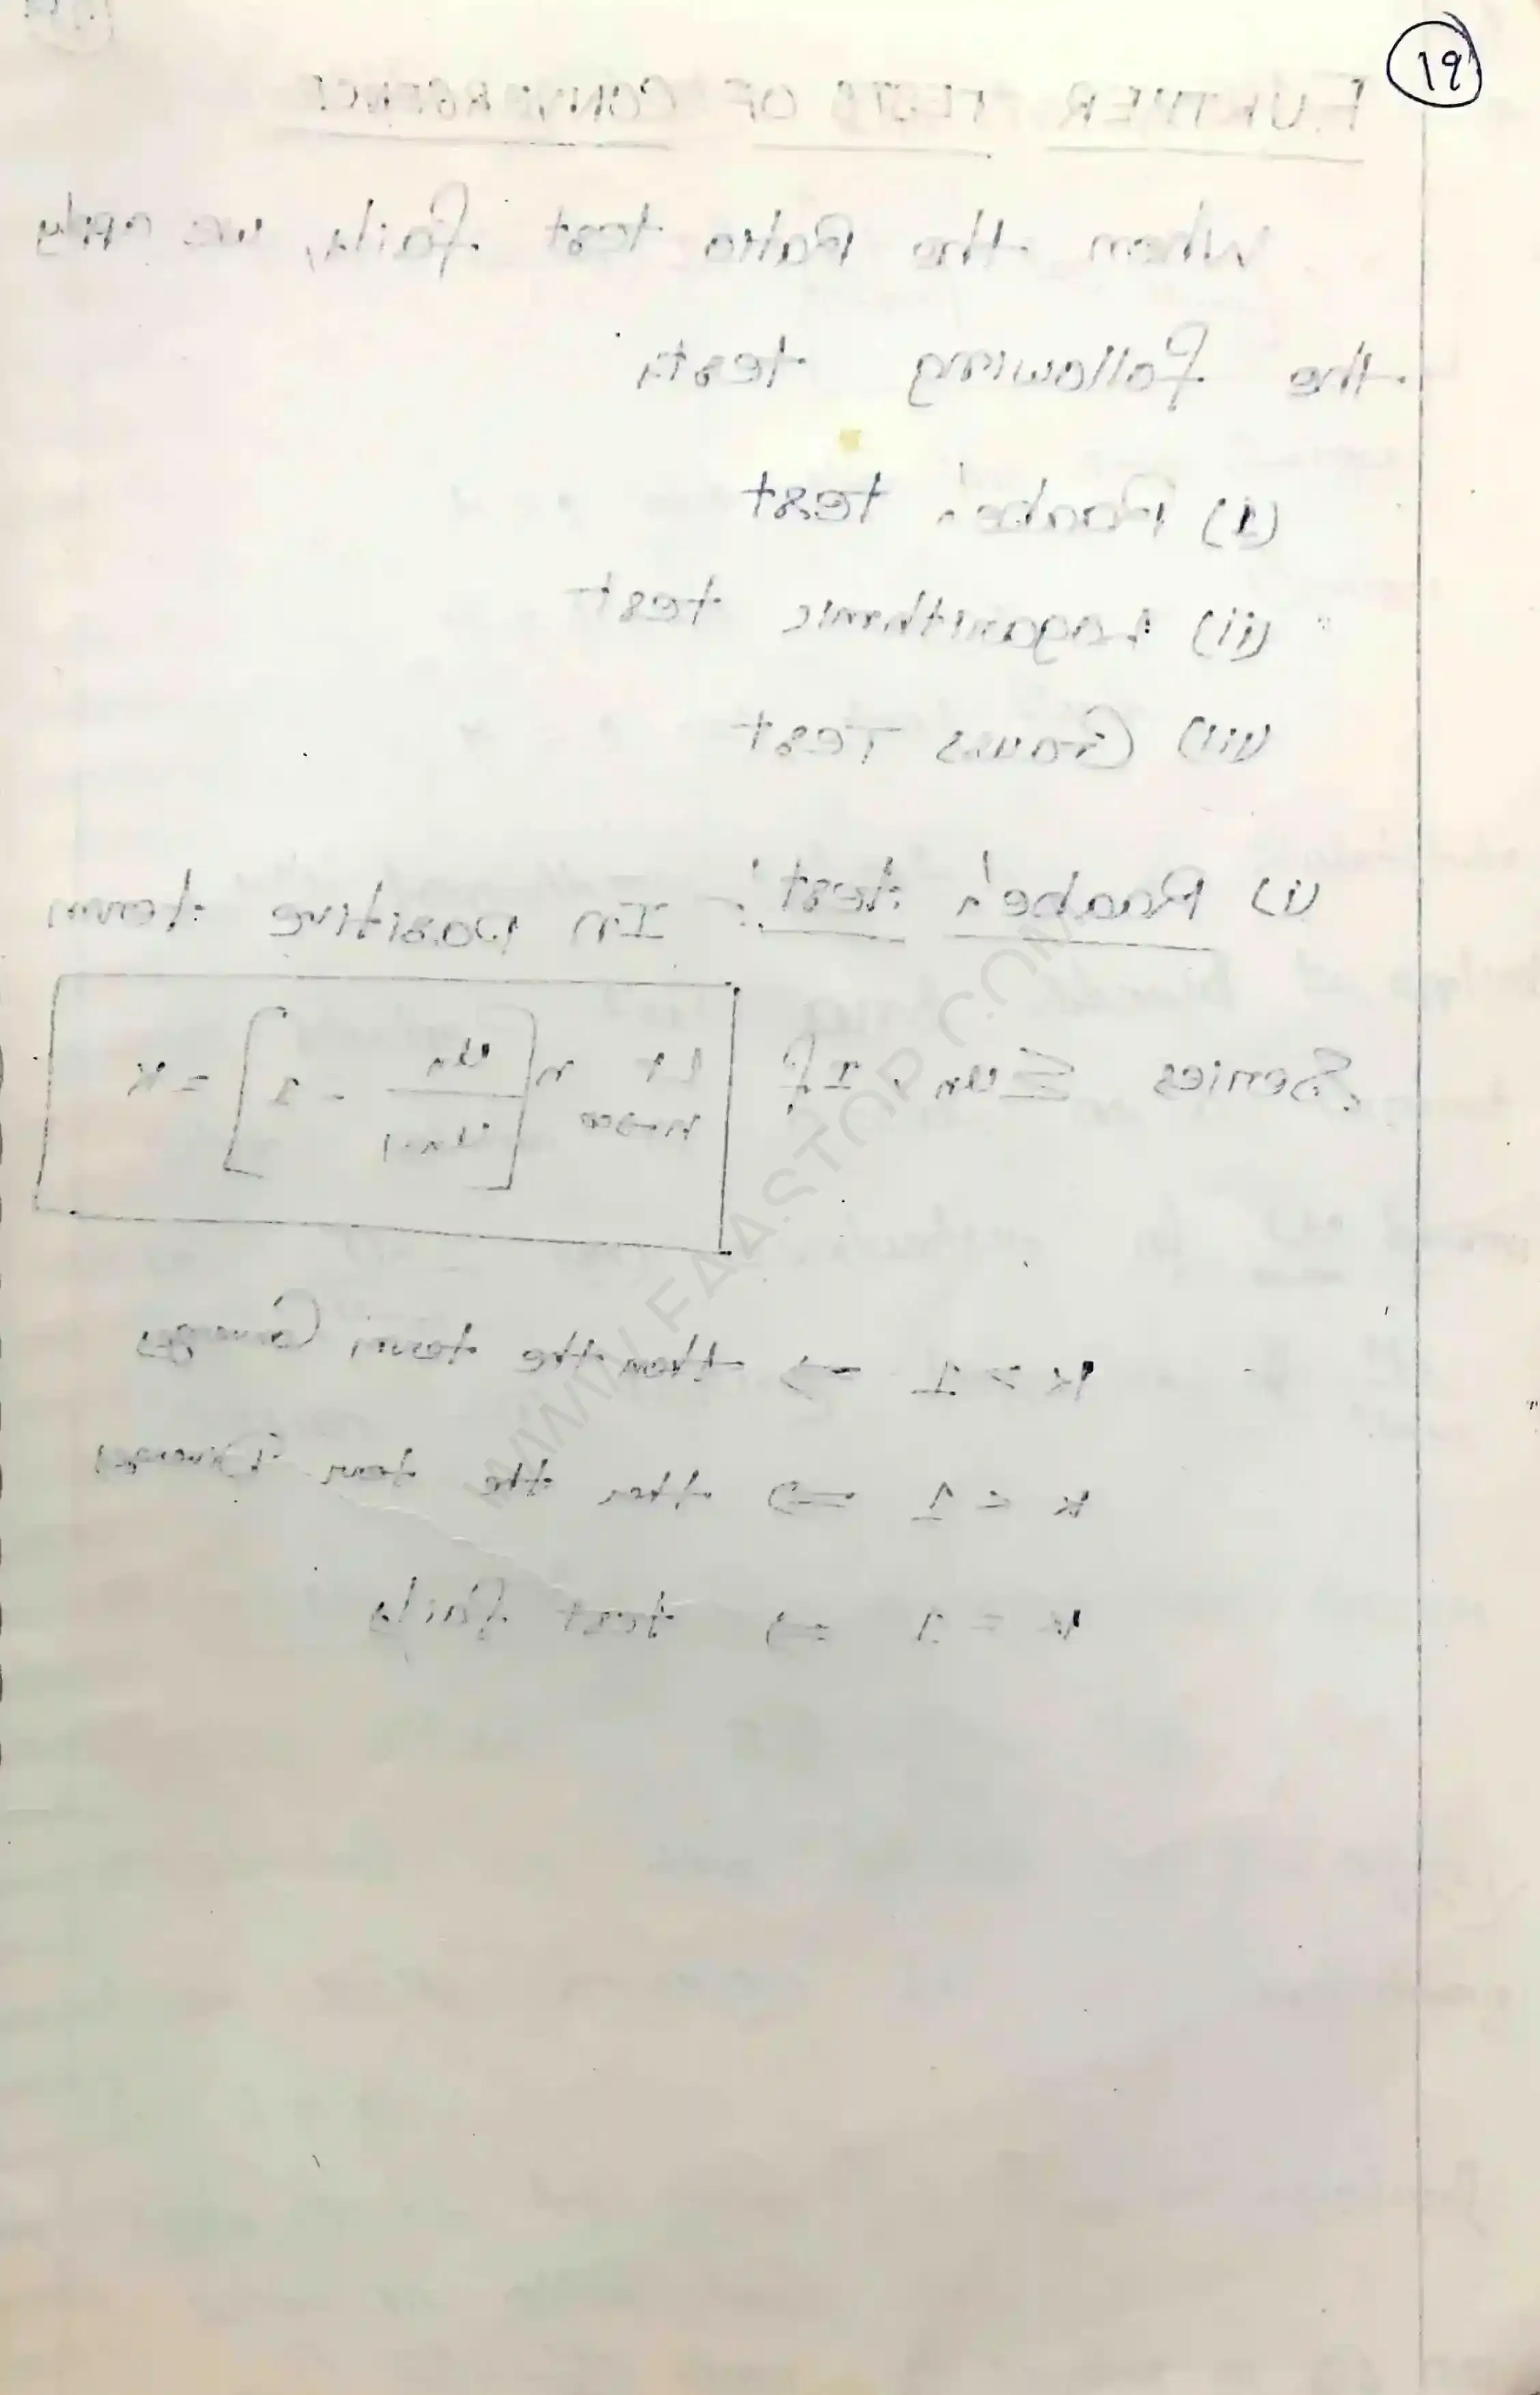 19
FURTHER TESTS OF CONVERGENCE
When the Ratio test fails, we apply
the following tests
(i) Raabe's test
(ii) Logarithmic test
(iii) Gauss Test
(i) Raabe's test :- In positive term
Series Σun, If Lt n→∞ n[un/un+1 - 1] = k
k > 1 ⇒ then the term Converges
k < 1 ⇒ then the term Diverges
k = 1 ⇒ test fails
WWW.FAASTOP.COM